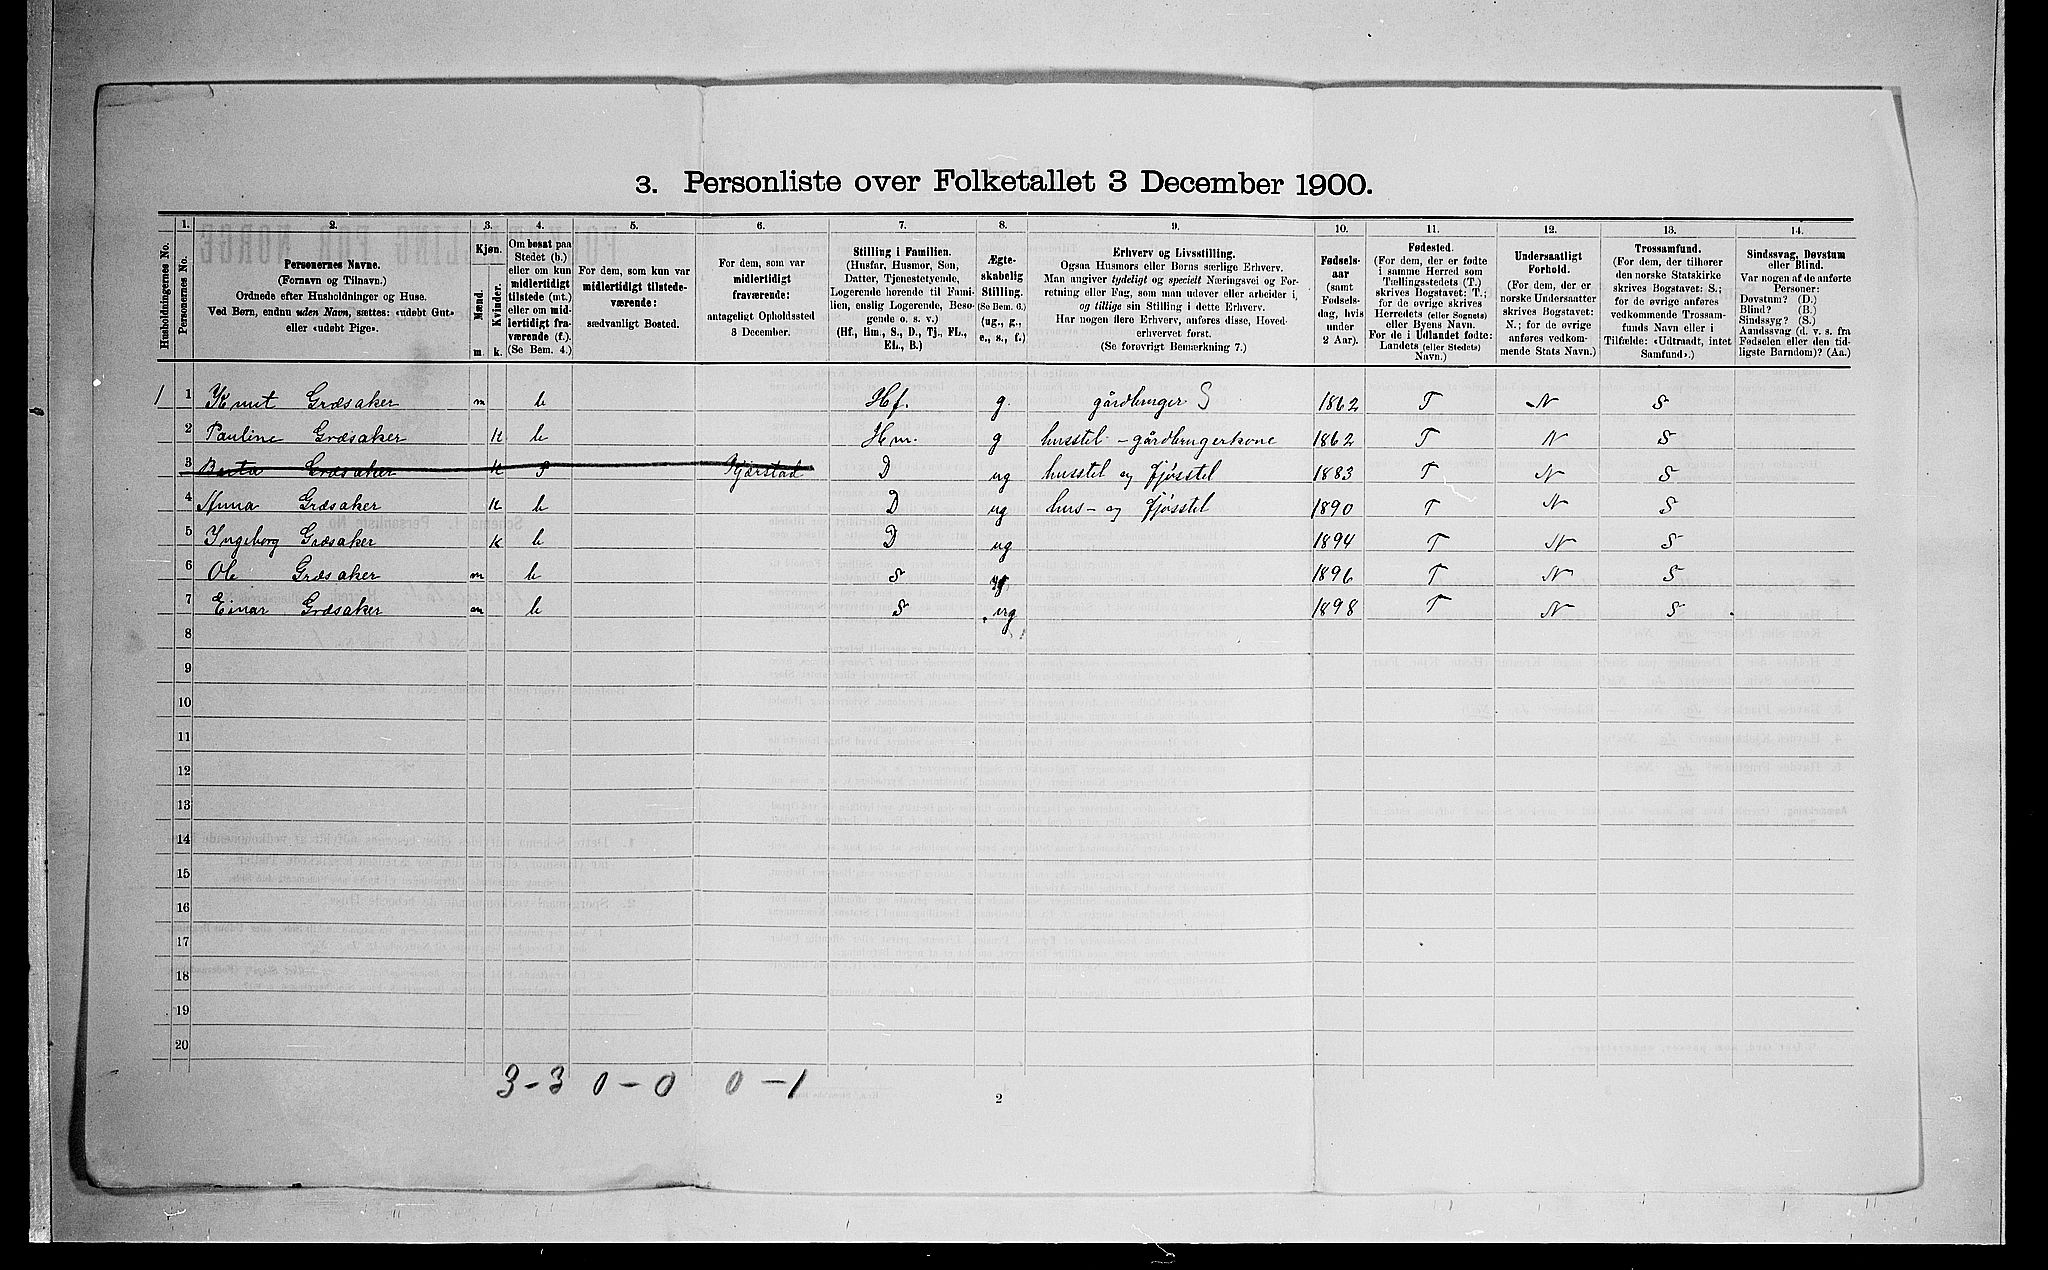 3. Personliste over Folketallet 3 December 1900.
1. 2. 3. 4. 5. 6. 7. 8. 9. 10. 11. 12. 13. 14.
Husholdningernes No.
Personernes No.
Personernes Navne.
(Fornavn og Tilnavn.)
Ordnede efter Husholdninger og Huse.
Ved Børn, endnu uden Navn, sættes: «udøbt Gut»
eller «udøbt Pige».
Kjøn.
Mænd.
Kvinder.
m. k.
Om bosat paa
Stedet (b.)
eller om kun
midlertidigt
tilstede (mt.)
eller om mid-
lertidigt fra-
værende (f.).
(Se Bem. 4.)
For dem, som kun var
midlertidigt tilstede-
værende:
sædvanligt Bosted.
For dem, som var
midlertidigt
fraværende:
antageligt Opholdssted
3 December.
Stilling i Familien.
(Husfar, Husmor, Søn,
Datter, Tjenestetyende,
Logerende hørende til Fami-
lien, enslig Logerende, Besø-
gende o. s. v.)
(Hf., Hm., S., D., Tj., FL.,
EL., B.)
Ægte-
skabelig
Stilling.
(Se Bem. 6.)
(ug., g.,
e., s., f.)
Erhverv og Livsstilling.
Ogsaa Husmors eller Børns særlige Erhverv.
Man angiver tydeligt og specielt Næringsvei og For-
retning eller Fag, som man udøver eller arbeider i,
og tillige sin Stilling i dette Erhverv.
Har nogen flere Erhverv, anføres disse, Hoved-
erhvervet først.
(Se forøvrigt Bemærkning 7.)
Fødsels-
aar
(samt
Fødsels-
dag, hvis
under
2 Aar).
Fødested.
(For dem, der er fødte
i samme Herred som
Tællingsstedets (T.)
skrives Bogstavet: T.;
for de øvrige skrives
Herredets (eller Sognets)
eller Byens Navn.
For de i Udlandet fødte:
Landets (eller Stedets)
Navn.)
Undersaatligt
Forhold.
(For dem, der er
norske Undersaatter
skrives Bogstavet:
N.; for de øvrige
anføres vedkom-
mende Stats Navn.)
Trossamfund.
(For dem, der tilhører
den norske Statskirke
skrives Bogstavet: S.;
for de øvrige anføres
vedkommende Trossam-
funds Navn eller i
Tilfælde: «Udtraadt, intet
Samfund».)
Sindssvag, Døvstum
eller Blind.
Var nogen af de anførte
Personer:
Døvstum? (D.)
Blind? (B.)
Sindssyg? (S.)
Aandssvag (d. v. s. fra
Fødselen eller den tid-
ligste Barndom)? (Aa.)
1 1 Knut Græsaker m b Hf. g. gårdbruger S 1862 T N S
2 Pauline Græsaker k b Hm. g husstel - gårdbrugerkone 1862 T N S
3 Berta Græsaker k f Gjørstad D ug husstel og fjøsstel 1883 T N S
4 Anna Græsaker k b D ug hus- og fjøsstel 1890 T N S
5 Ingeborg Græsaker k b D ug 1894 T N S
6 Ole Græsaker m b S ug 1896 T N S
7 Einar Græsaker m b S ug 1898 T N S
8
9
10
11
12
13
14
15
16
17
18
19
20
3-3 0-0 0-1
2